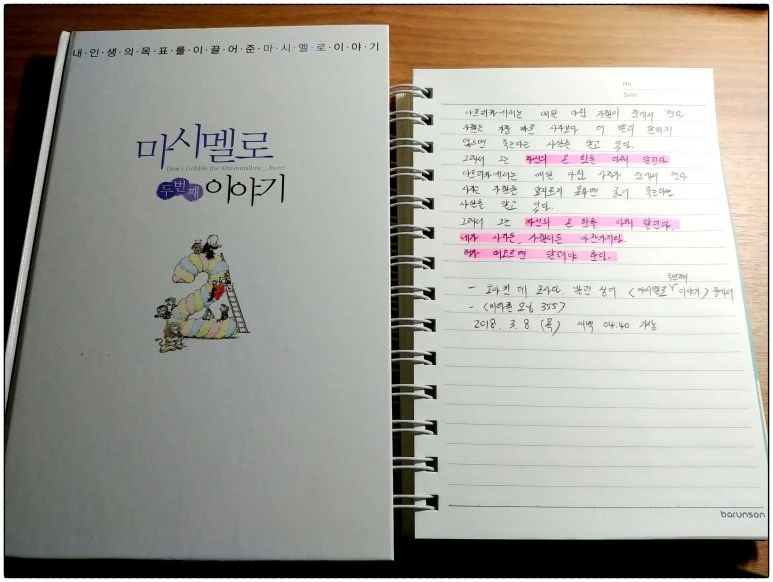 내·인·생·의·목·표·를·이·끌·어·준·마·시·멜·로·이·야·기
마시멜로
Don't Gobble the Marshmallow... Ever!
두번째 이야기
No.
Date.
아프리카에서는 매일 아침 가젤이 눈에서 깬다.
가젤은 가장 빠른 사자보다 더 빨리 달리지
않으면 죽는다는 사실을 알고 있다.
그래서 그는 자신의 온 힘을 다해 달린다.
아프리카에서는 매일 아침 사자가 잠에서 깬다.
사자는 가젤을 앞지르지 못하면 굶어 죽는다는
사실을 알고 있다.
그래서 그는 자신의 온 힘을 다해 달린다.
네가 사자든, 가젤이든 마찬가지다.
해가 떠오르면 달려야 한다.
- 호아킴 데 포사다 엘런 싱어 <마시멜로 두번째 이야기> 중에서
- <아리쏭 모닝 355>
2018. 3. 8 (목) 새벽 04:40 기상
barunson